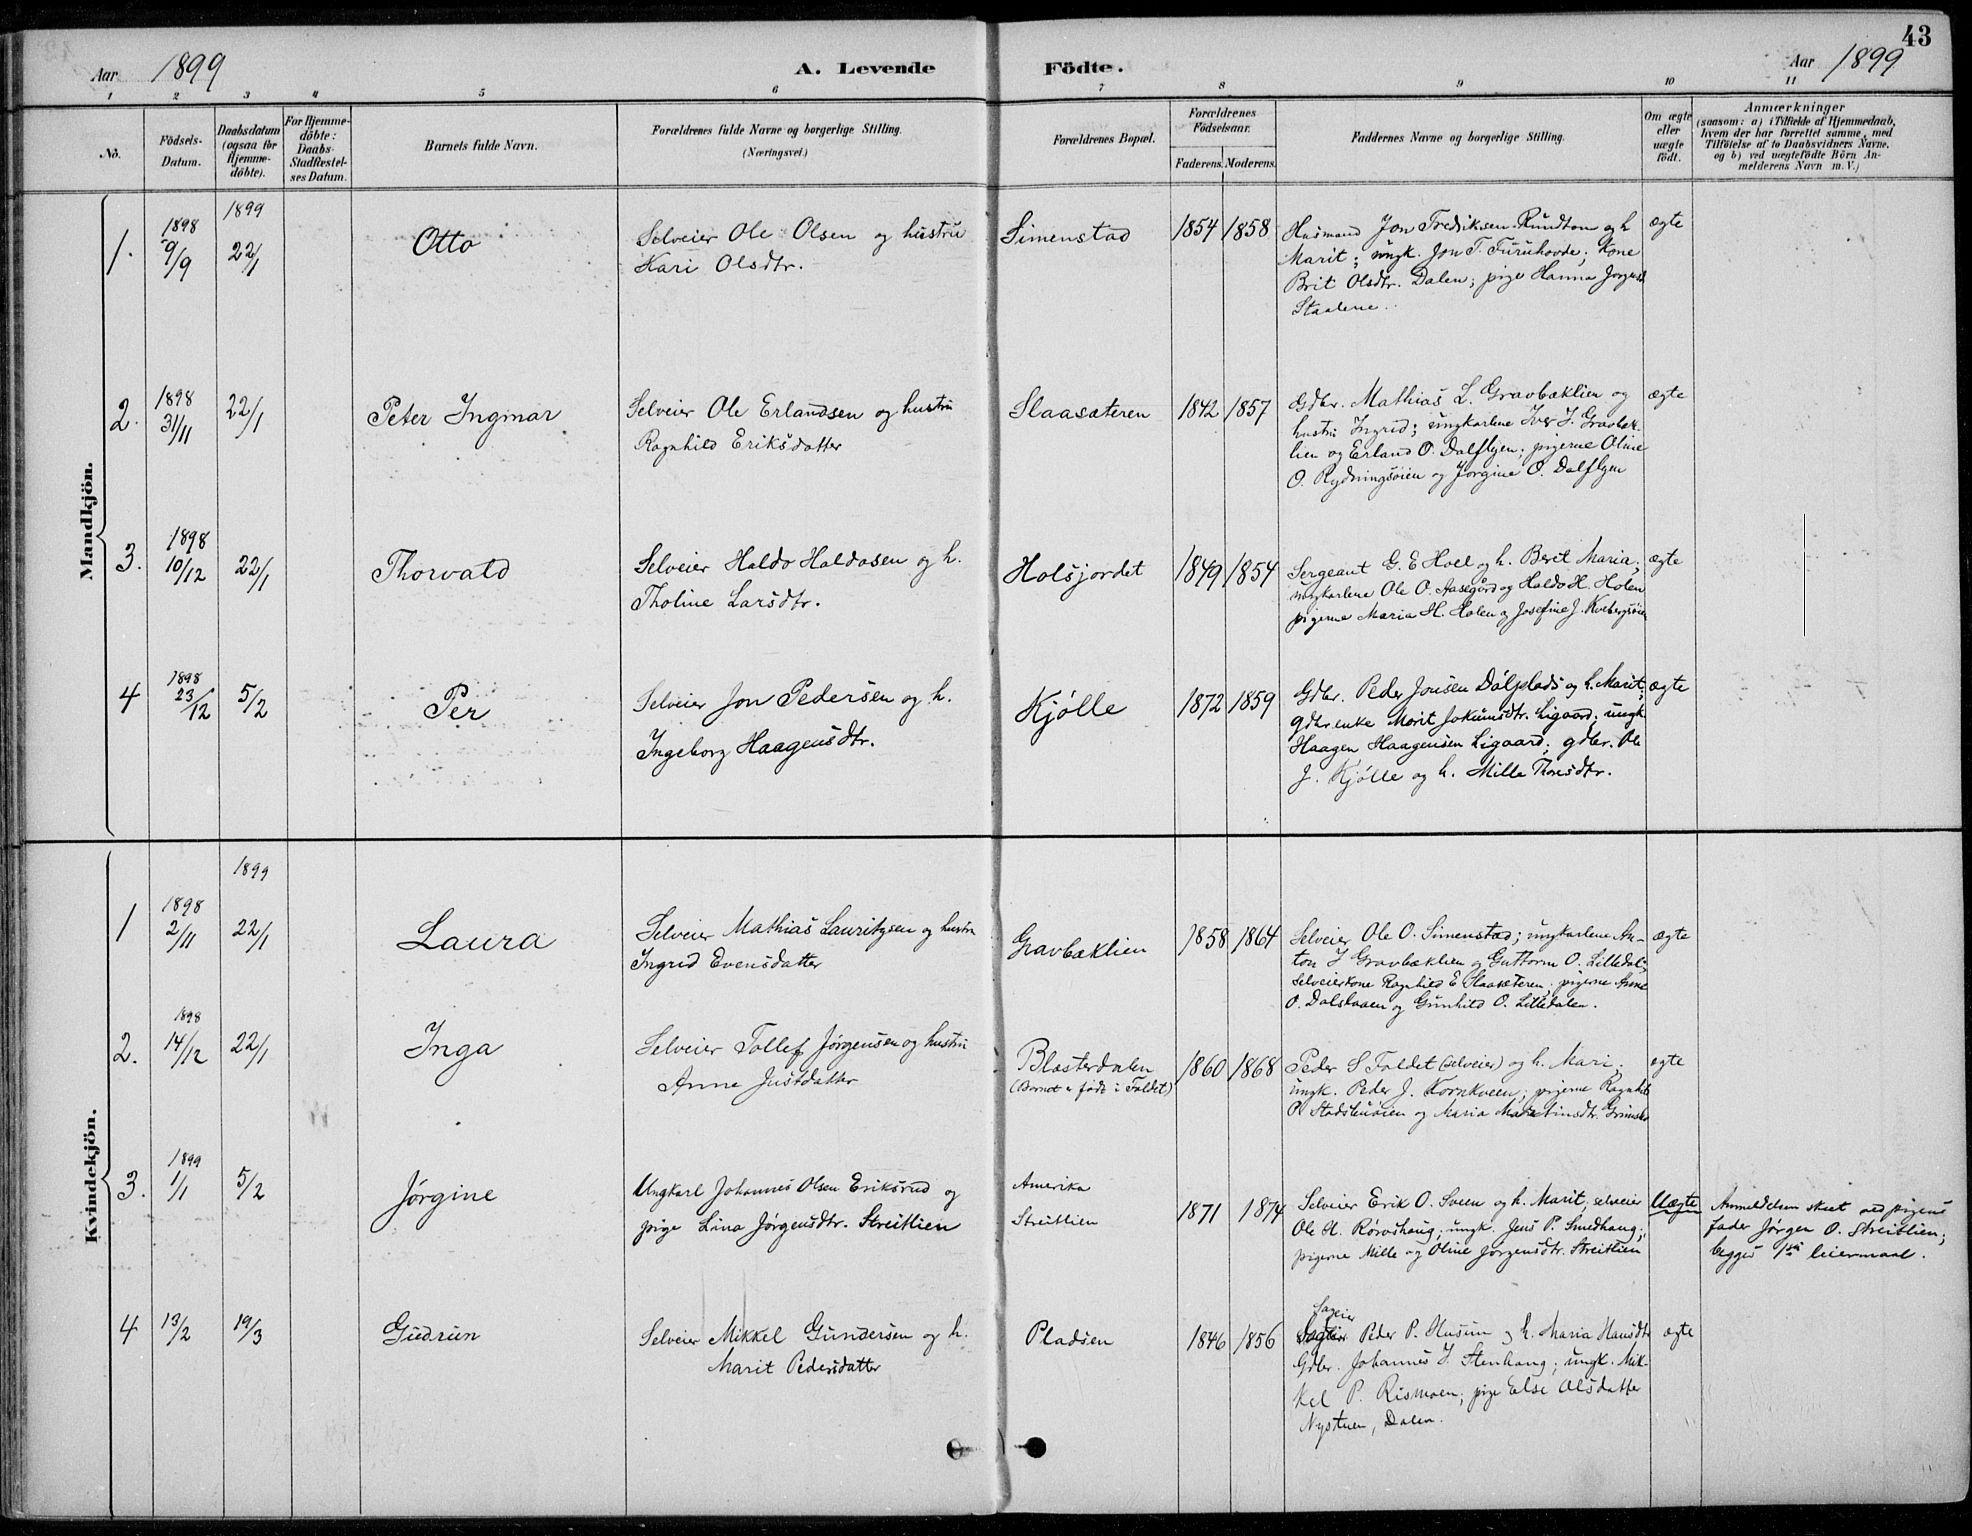 43
Aar 1899 A. Levende Födte. Aar 1899
1 2 3 4 5 6 7 8 9 10 11
No.
Födsels-
Datum.
Daabsdatum
(ogsaa for
Hjemme-
döbte).
For Hjemme-
döbte:
Daabs-
Stadfæstel-
ses Datum.
Barnets fulde Navn.
Forældrenes fulde Navne og borgerlige Stilling.
(Næringsvei.)
Forældrenes Bopæl.
Forældrenes
Födselsaar.
Faderens. Moderens.
Faddernes Navne og borgerlige Stilling.
Om ægte
eller
uægte
födt.
Anmærkninger
(saasom: a) i Tilfælde af Hjemmedaab,
hvem der har forrettet samme, med
Tilföielse af to Daabsvidners Navne,
og b) ved uægtefödte Börn An-
melderens Navn m. V.)
Mandkjön.
1. 1898 9/9 1899 22/1 Otto
Selveier Ole Olsen og hustru
Kari Olsdtr.
Simenstad 1854 1858
Husmand Jon Frediksen Rundtom og h
Marit; ungk. Jon T. Furuhovde; Kone
Brit Olsdtr. Dalen; pige Hanna
Staalene
ægte
2. 1898 31/11 22/1 Peter Ingmar
Selveier Ole Erlandsen og hustru
Ragnhild Eriksdatter
Slaasæteren 1842 1857
Gdbr. Mathias L. Gravbæklien og
hustru Ingrid; ungkarlene Iver J. Gravbæk-
lien og Erland O. Dalflyen; pigerne Oline
O. Rydningsøien og Jørgine O. Dalflyen
ægte
3. 1898 10/12 22/1 Thorvald
Selveier Haldo Haldosen og h.
Tholine Larsdtr.
Holsjordet 1849 1854
Sergeant G. E Hoel og h. Berit Maria;
ungkarlene Ole O. Aasegård og Haldo H. Holen
pigerne Maria H. Holen og Josefine J. Kvebergsøien
ægte
4 1898 23/12 5/2 Per
Selveier Jon Pedersen og h.
Ingeborg Haagensdtr.
Kjølle 1872 1859
Gdbr. Peder Jonsen Dølplads og h. Marit;
gdbr.enke Marit Jokumsdtr. Ligaard; ungk.
Haagen Haagensen Ligaard; gdbr. Ole
J. Kjølle og h. Mille Thoresdtr.
ægte
Kvindekjön.
1 1898 2/11 1899 22/1 Laura
Selveier Mathias Lauritzsen og hustru
Ingrid Evensdatter
Gravbæklien 1858 1864
Selveier Ole O. Simenstad; ungkarlene An-
ton J Gravbæklien og Guttorm O. Lilledal;
Selveierkone Ragnhild E Slaasæteren; pigerne Anne
O. Dalslaaen og Gunhild O. Lilledalen.
ægte
2. 1898 14/12 22/1 Inga
Selveier Tollef Jørgensen og hustru
Anne Justdatter
Blæsterdalen
(Barnet er født i Foldet)
1860 1868
Peder S Foldet (selveier) og h. Mari;
ungk. Peder J. Kornkveen; pigerne Ragnhild
P. Stadsbuøien og Maria Martinsdtr.
ægte
3. 1899 1/1 5/2 Jørgine
Ungkarl Johannes Olsen Eriksrud og
pige Lina Jørgensdtr. Streitlien
Amerika
Streitlien
1871 1874
Selveier Erik O. Sveen og h. Marit, selveier
Ole A. Rørvshaug; ungk. Jens P. Smedhaug;
pigerne Mille og Oline Jørgensdtr. Streitlien
Uægte
Anmeldelsen skeet ved pigens
fader Jørgen O. Streitlien;
begges 1ste leiermaal.
4 13/2 19/3 Gudrun
Selveier Mikkel Gundersen og h.
Marit Pedersdatter
Pladsen 1846 1856
Sageier
Peder P. Husum og h. Maria Hansdtr
Gdbr. Johannes J. Stenhaug; ungk. Mik-
kel P. Rismoen; pige Else Olsdatter
Nystuen, Dalen.
ægte